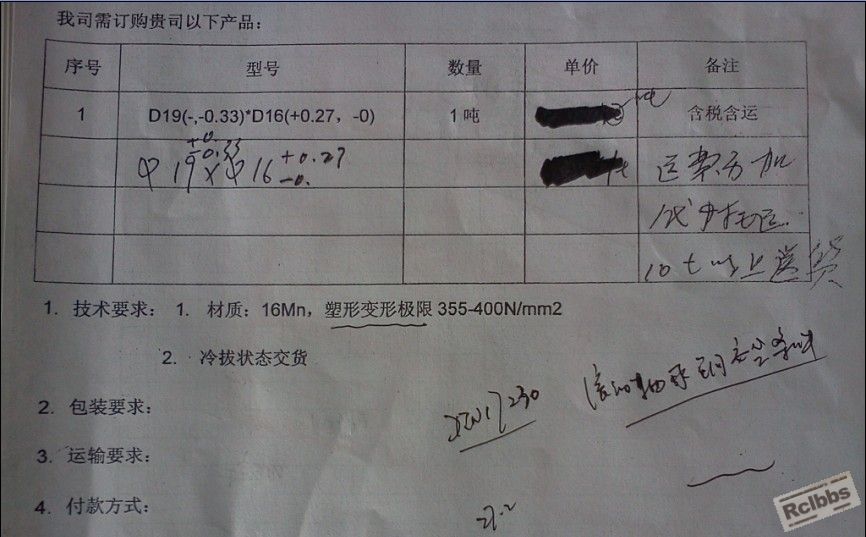 我司需订购贵司以下产品：
序号 型号 数量 单价 备注
1 D19(-,-0.33)*D16(+0.27，-0) 1 吨 含税含运
+0.
-0.33 +0.27
Φ 19 × Φ 16 -0.
运费另加
10 t 以上送货
1. 技术要求： 1. 材质：16Mn，塑形变形极限 355-400N/mm2
2. 冷拔状态交货
2. 包装要求：
3. 运输要求：
4. 付款方式：
Rclbbs